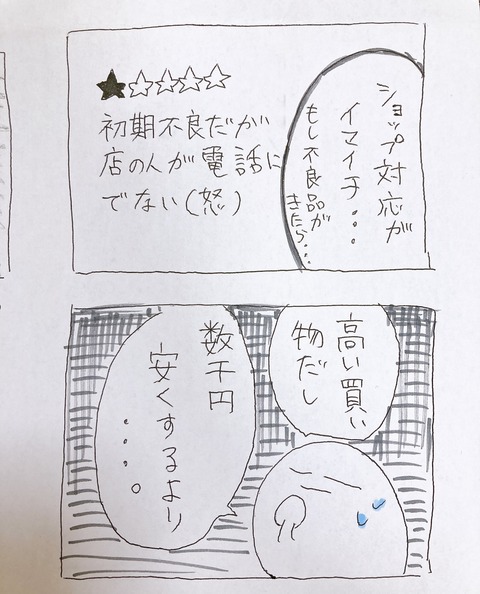 ショップ対応が
イマイチ・・・
もし不良品が
きたら・・・
★☆☆☆☆
初期不良だが
店の人が電話に
でない(怒)
高い買い
物だし
数千円
安くするより
・・・・。